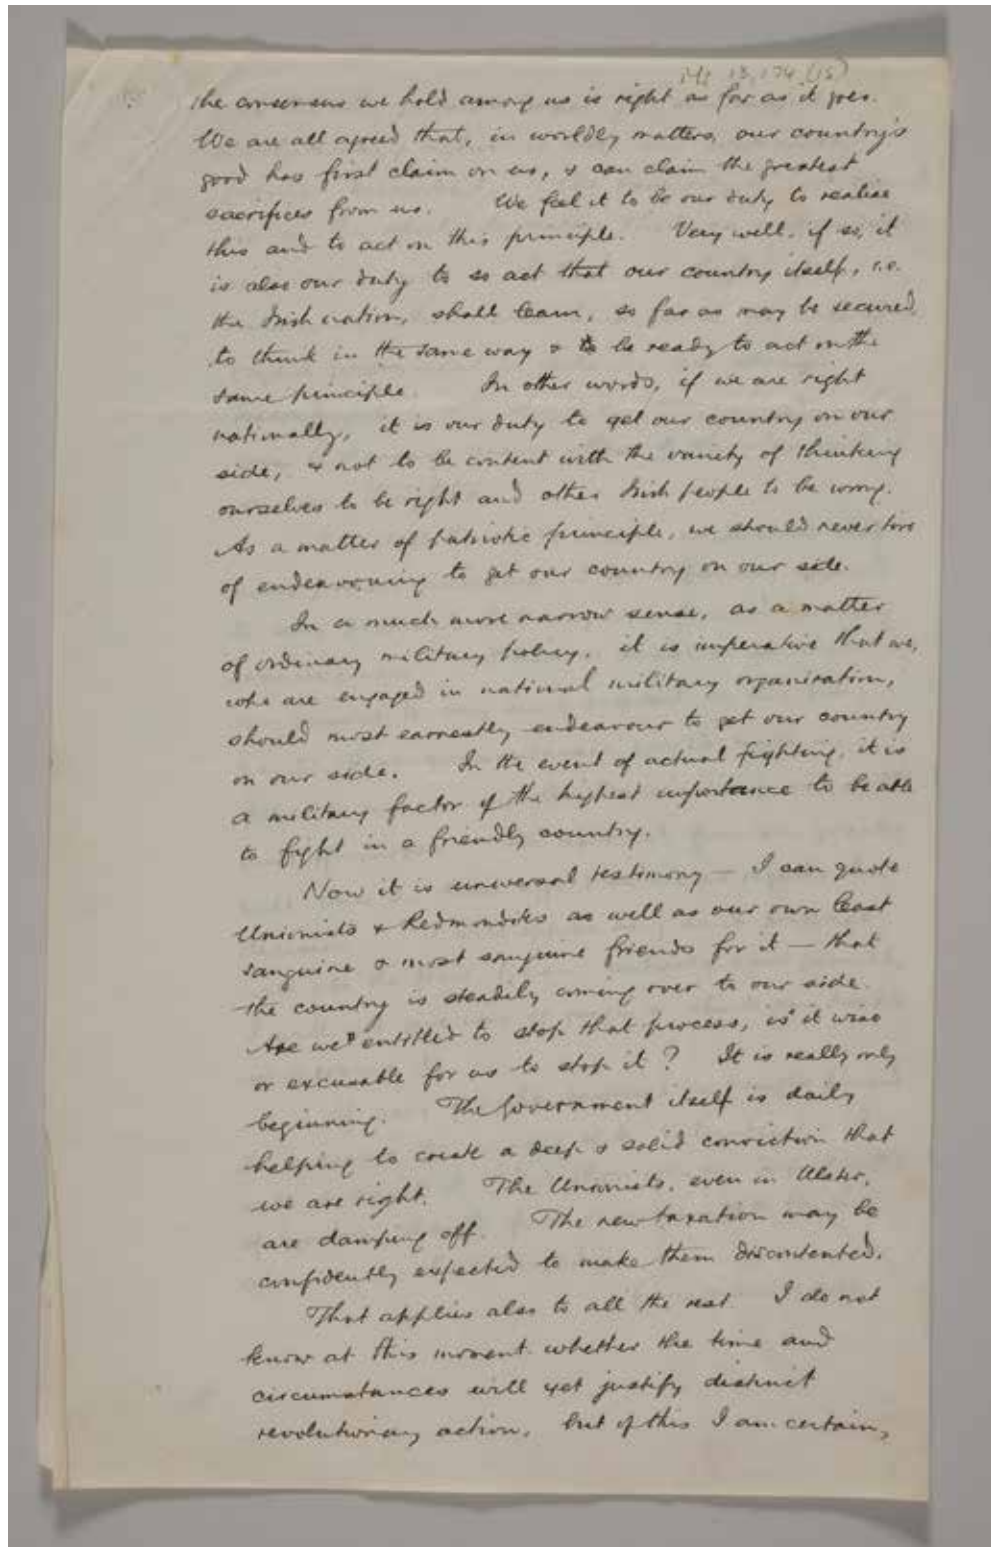 Ms 13,174 (15)
the consensus we hold among us is right as far as it goes.
We are all agreed that, in worldly matters, our country's
good has first claim on us, & can claim the greatest
sacrifices from us. We feel it to be our duty to realise
this and to act on this principle. Very well, if so, it
is also our duty to so act that our country itself, i.e.
the Irish nation, shall learn, so far as may be secured,
to think in the same way & to be ready to act on the
same principle. In other words, if we are right
nationally, it is our duty to get our country on our
side, & not to be content with the vanity of thinking
ourselves to be right and other Irish people to be wrong.
As a matter of patriotic principle, we should never tire
of endeavouring to get our country on our side.
In a much more narrow sense, as a matter
of ordinary military policy, it is imperative that we,
who are engaged in national military organisation,
should most earnestly endeavour to get our country
on our side. In the event of actual fighting, it is
a military factor of the highest importance to be able
to fight in a friendly country.
Now it is universal testimony — I can quote
Unionists & Redmondites as well as our own least
sanguine & most sanguine friends for it — that
the country is steadily coming over to our side.
Are we entitled to stop that process, is it wise
or excusable for us to stop it? It is really only
beginning. The Government itself is daily
helping to create a deep & solid conviction that
we are right. The Unionists, even in Ulster,
are damping off. The new taxation may be
confidently expected to make them discontented.
That applies also to all the rest. I do not
know at this moment whether the time and
circumstances will yet justify distinct
revolutionary action, but of this I am certain,